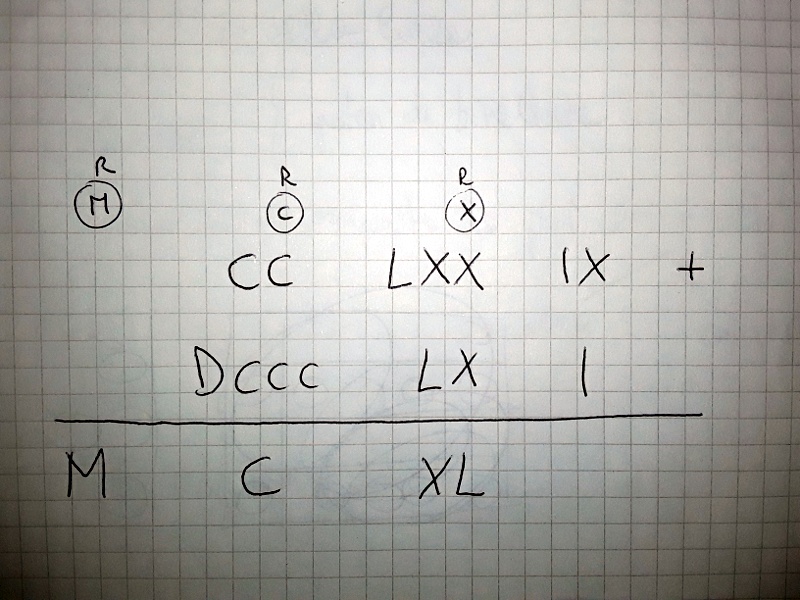 R R R
M C X
CC LXX IX +
DCCC LX I
M C XL